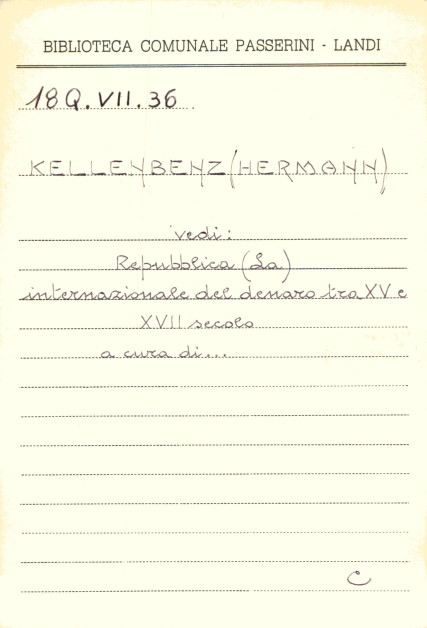 BIBLIOTECA COMUNALE PASSERINI - LANDI
18Q.VII.36
KELLENBENZ (HERMANN)
vedi:
Repubblica (La)
internazionale del denaro tra XV e
XVII secolo
a cura di...
C